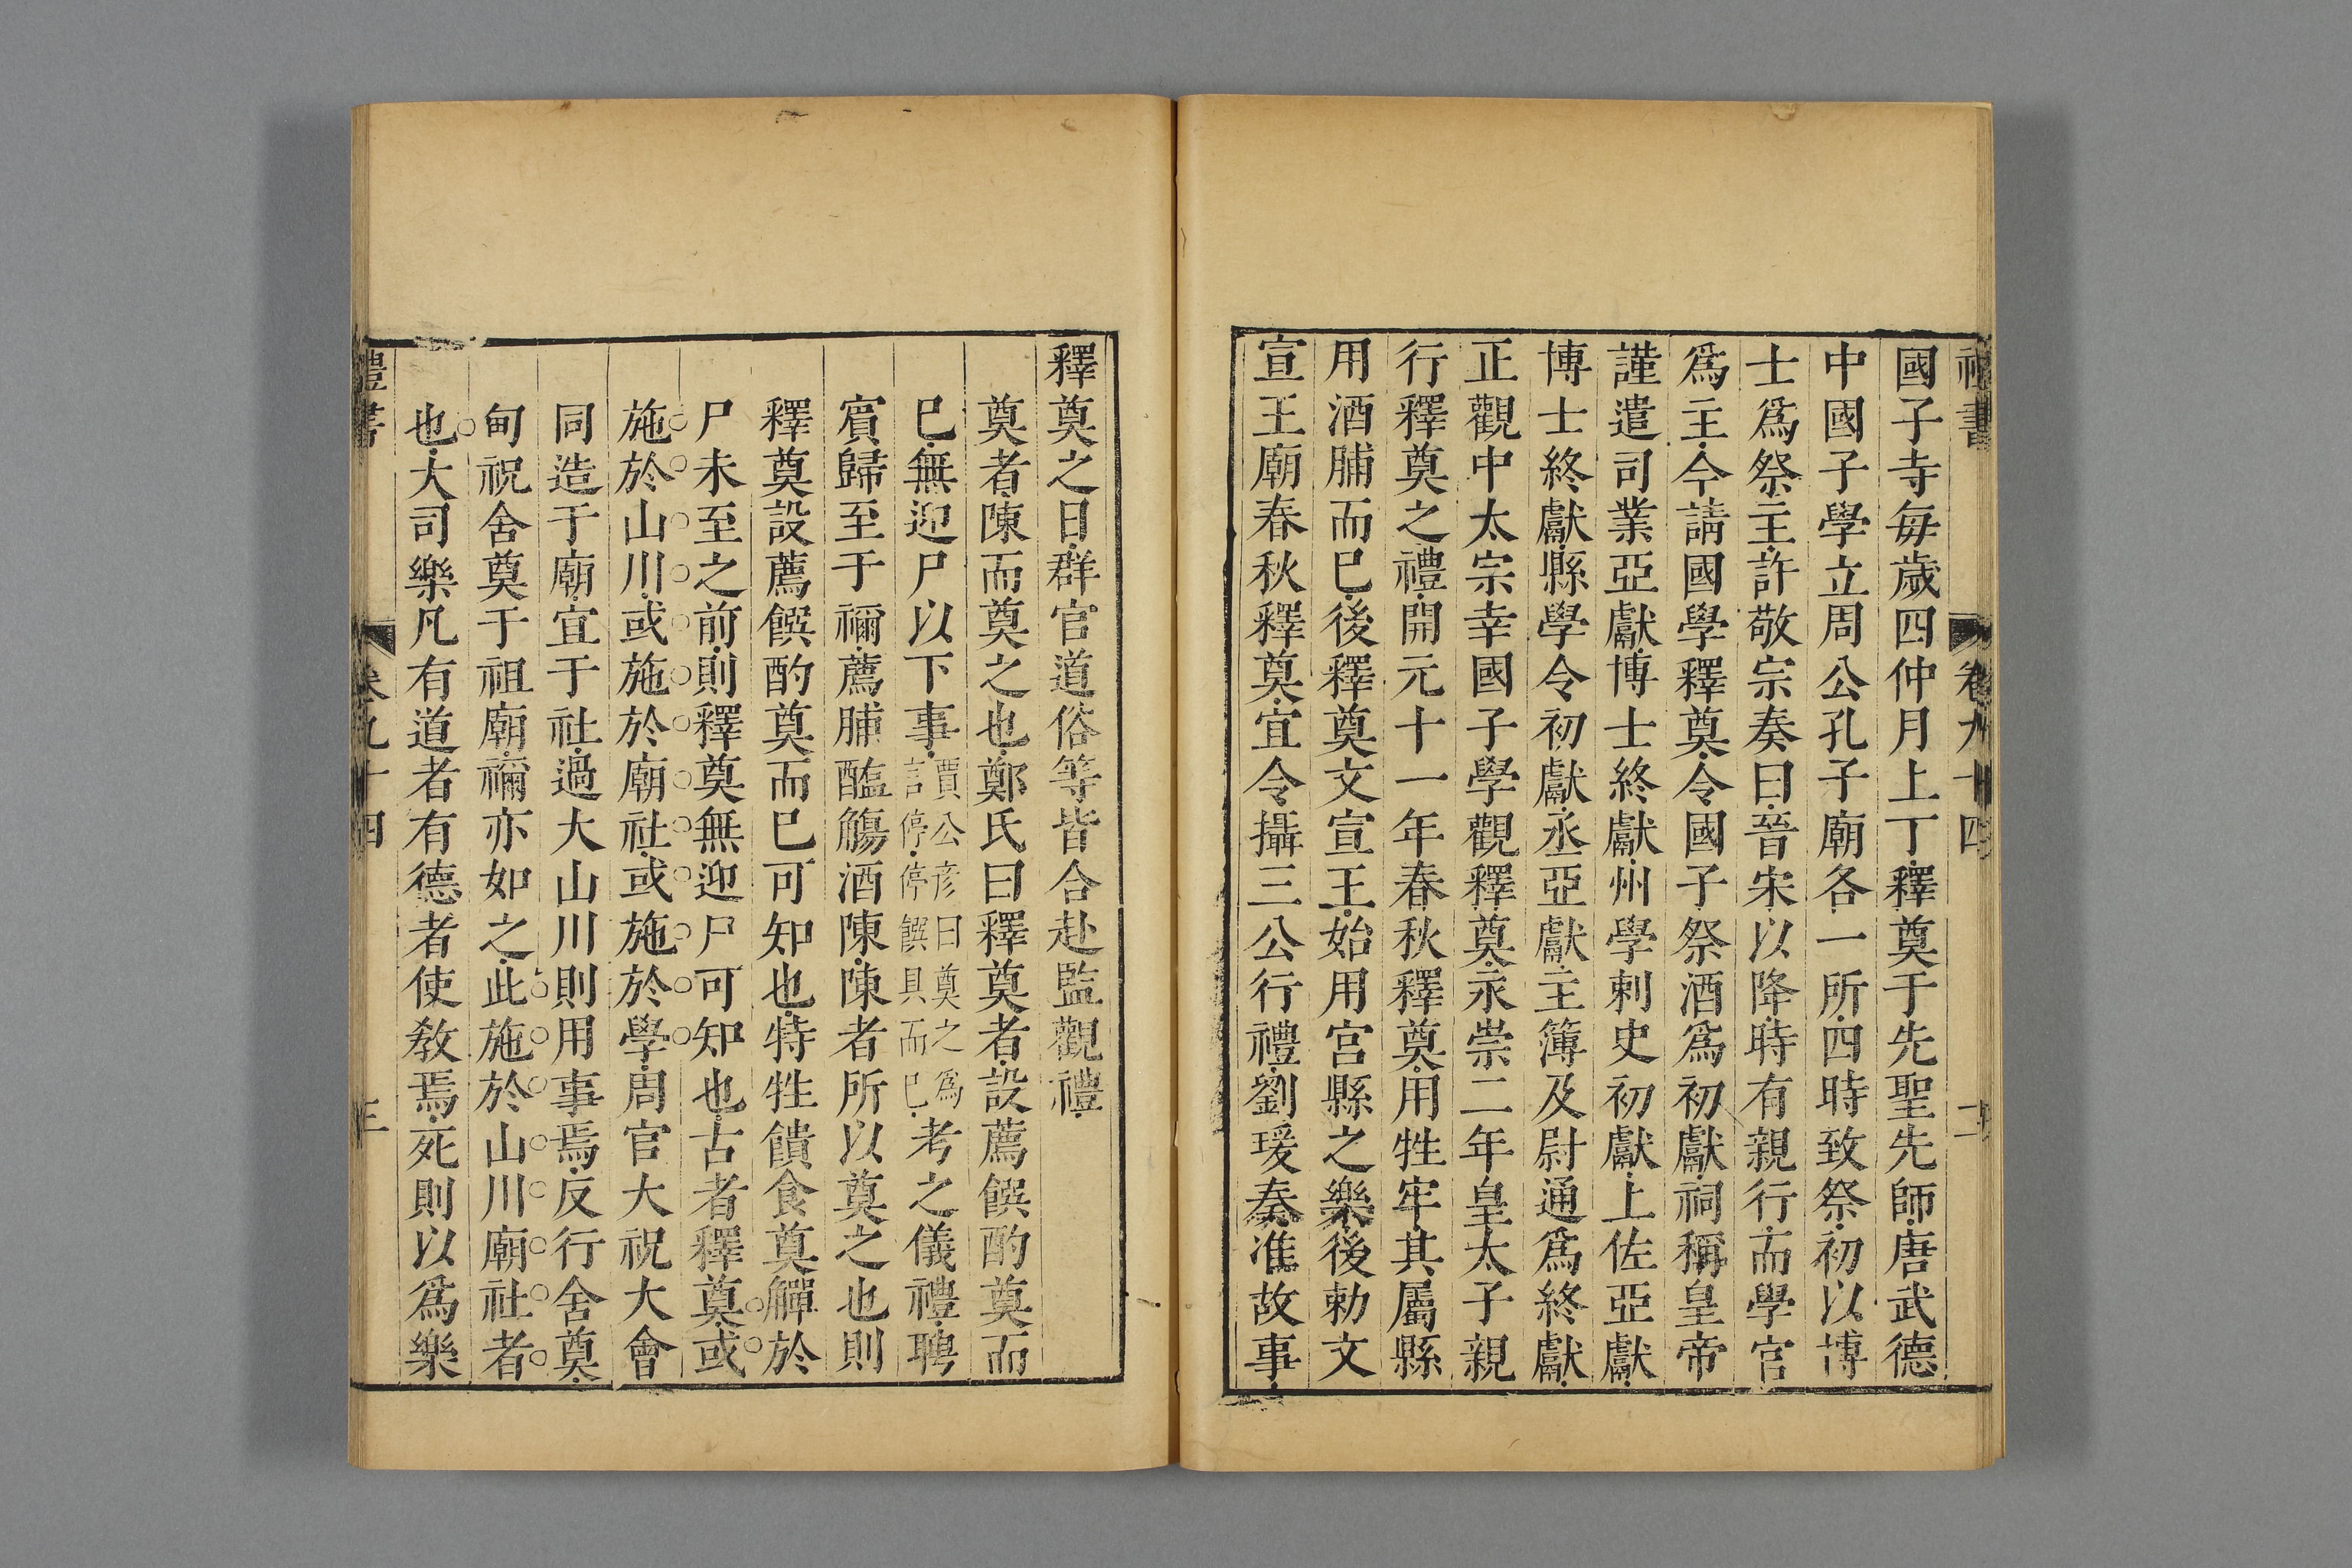 禮書
卷九十四
二
國子寺每歲四仲月上丁釋奠于先聖先師唐武德
中國子學立周公孔子廟各一所四時致祭初以博
士爲祭主許敬宗奏曰晉宋以降時有親行而學官
爲主今請國學釋奠令國子祭酒爲初獻祠稱皇帝
謹遣司業亞獻博士終獻州學刺史初獻上佐亞獻
博士終獻縣學令初獻丞亞獻主簿及尉通爲終獻
正觀中太宗幸國子學觀釋奠永崇二年皇太子親
行釋奠之禮開元十一年春秋釋奠用牲牢其屬縣
用酒脯而已後釋奠文宣王始用宮縣之樂後勅文
宣王廟春秋釋奠宜令攝三公行禮劉瑗奏准故事
釋奠之日群官道俗等皆合赴監觀禮
奠者陳而奠之也鄭氏曰釋奠者設薦饌酌奠而
已無迎尸以下事賈公彥曰奠之爲言停停饌具而已考之儀禮聘
賓歸至于禰薦脯醢觴酒陳陳者所以奠之也則
釋奠設薦饌酌奠而已可知也特牲饋食奠觶於
尸未至之前則釋奠無迎尸可知也古者釋奠或
施於山川或施於廟社或施於學周官大祝大會
同造于廟宜于社過大山川則用事焉反行舍奠
甸祝舍奠于祖廟禰亦如之此施於山川廟社者
也大司樂凡有道者有德者使教焉死則以爲樂
禮書
卷九十四
三